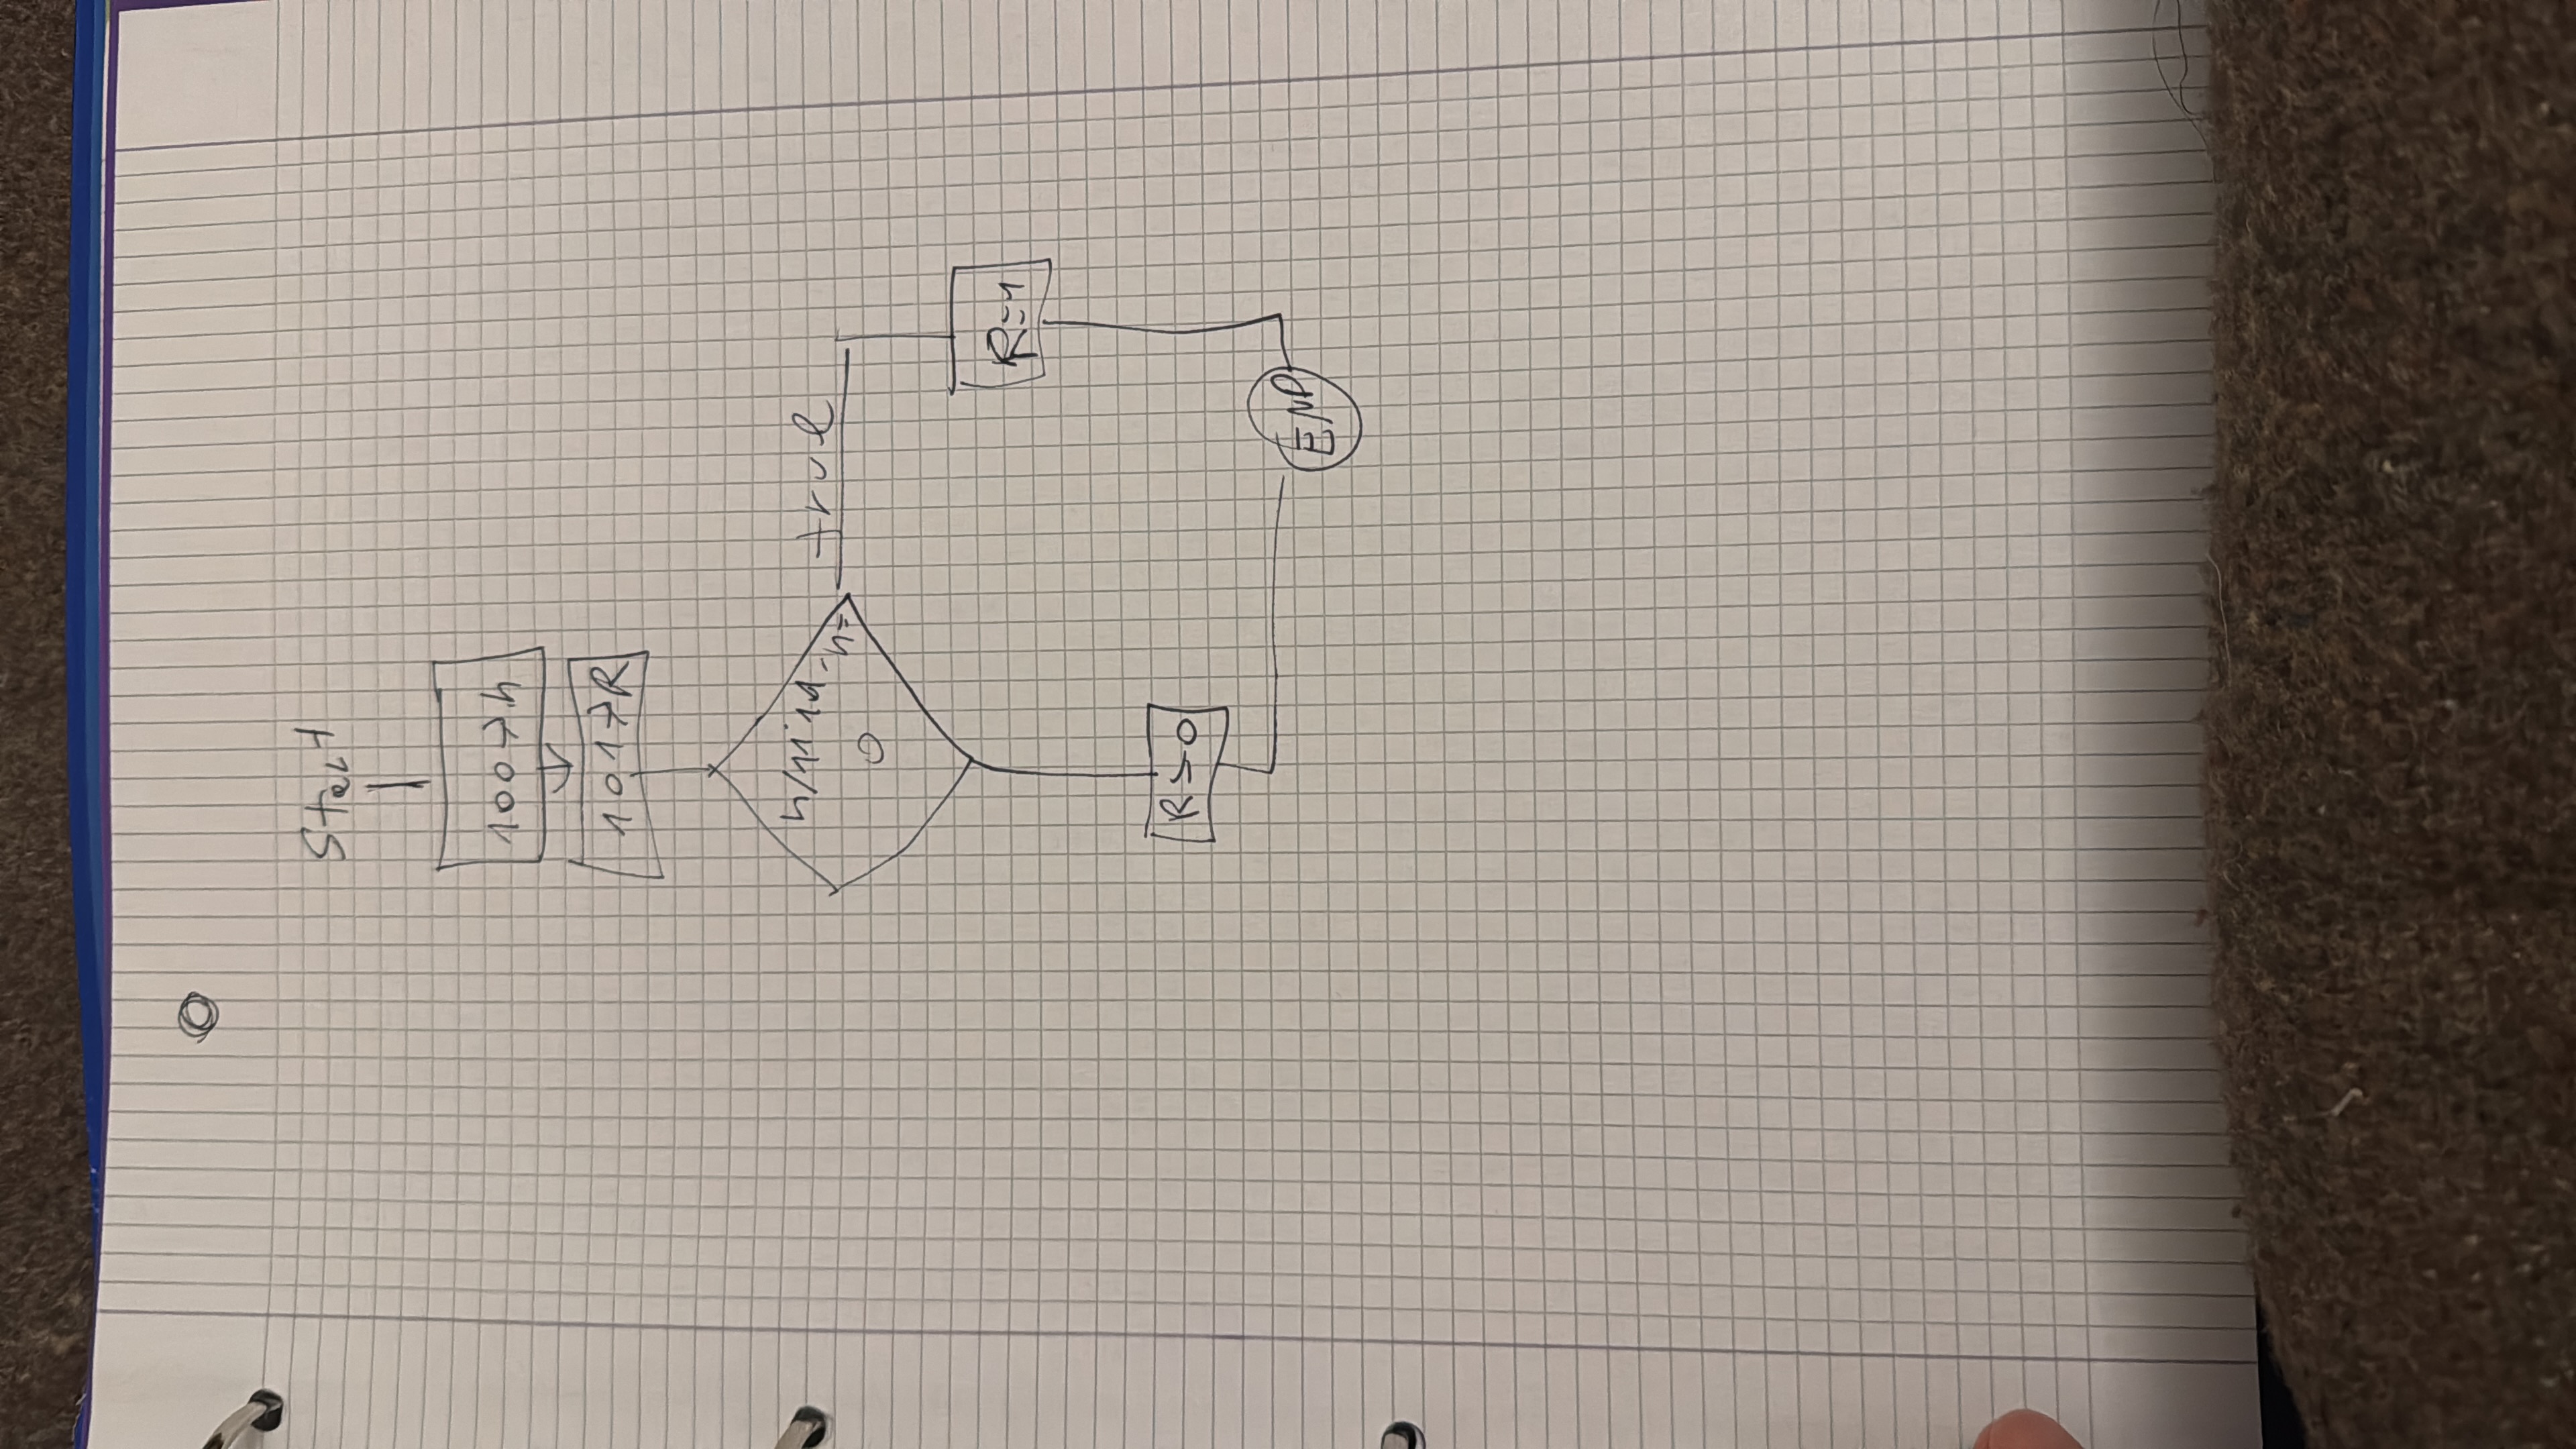 Start
100→h
101→R
h/11'11-h=
0
true
R=1
R→0
END